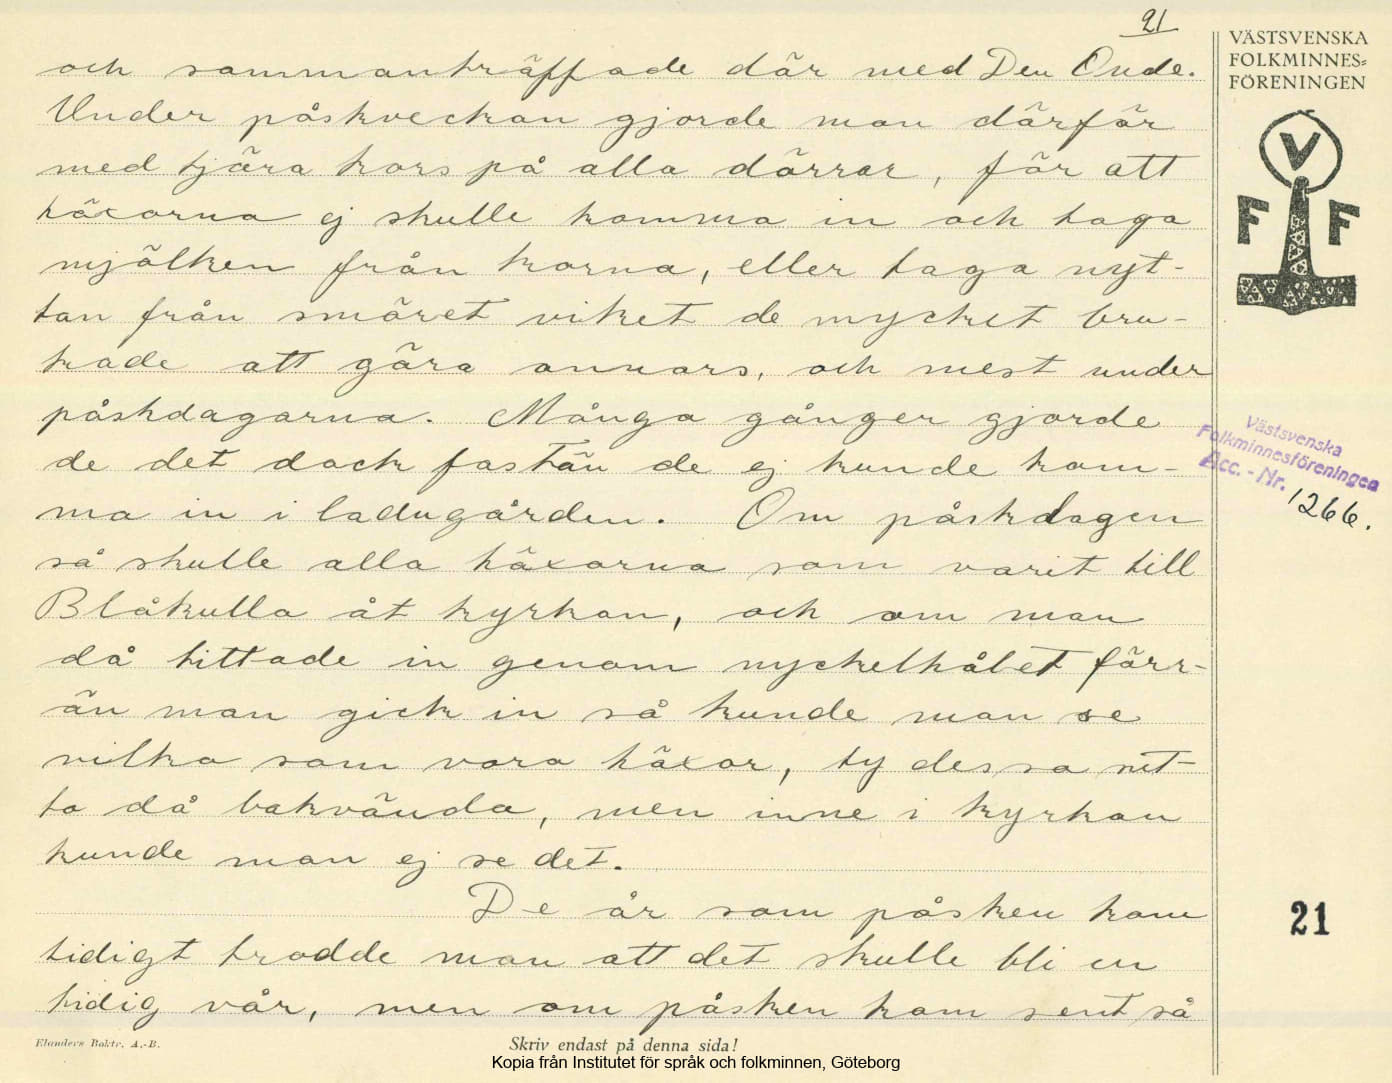 21
och sammanträffade där med Den Onde.
Under påskveckan gjorde man därför
med tjära kors på alla dörrar, för att
häxorna ej skulle komma in och taga
mjölken från korna, eller taga nyt-
tan från smöret viket de mycket bru-
kade att göra annars, och mest under
påskdagarna. Många gånger gjorde
de det dock fastän de ej kunde kom-
ma in i ladugården. Om påskdagen
så skulle alla häxorna som varit till
Blåkulla åt kyrkan, och om man
då tittade in genom nyckelhålet förr-
än man gick in så kunde man se
vilka som voro häxor, ty dessa sut-
to då bakvända, men inne i kyrkan
kunde man ej se det.
De år som påsken kom
tidigt trodde man att det skulle bli en
tidig vår, men om påsken kom sent så
VÄSTSVENSKA
FOLKMINNES=
FÖRENINGEN
V
F F
Västsvenska
Folkminnesföreningen
Acc. - Nr. 1266.
21
Elanders Boktr. A.-B.
Skriv endast på denna sida!
Kopia från Institutet för språk och folkminnen, Göteborg